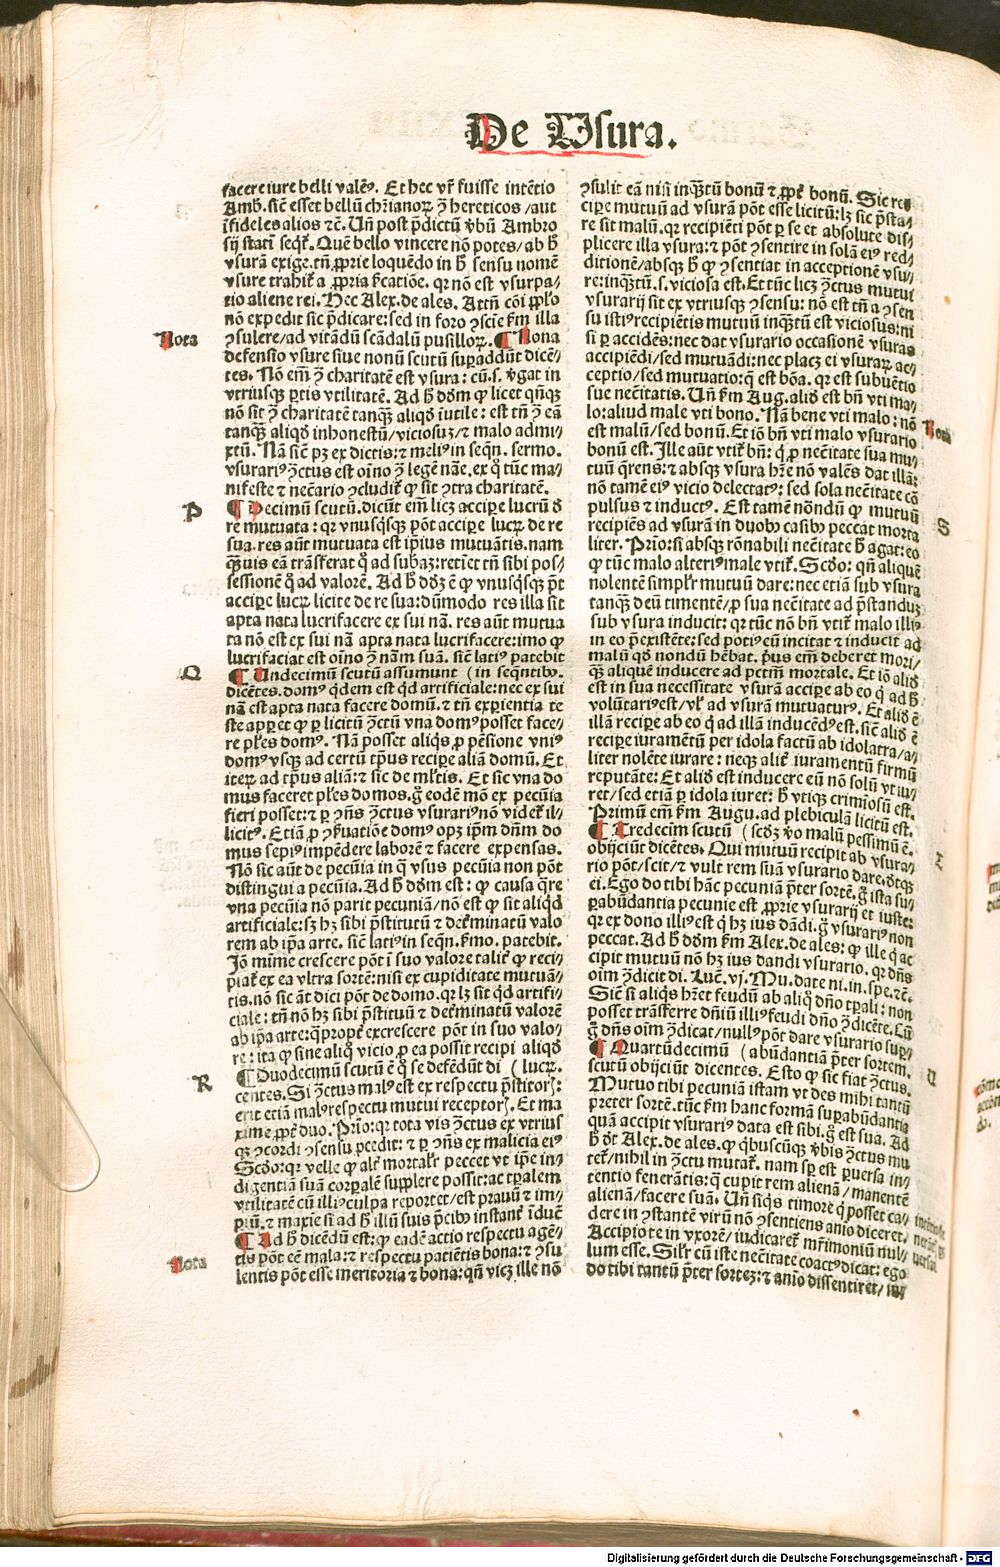 De Usura.
facere iure belli valēꝰ. Et hec vr̄ fuisse intētio
Amb. sic̄ esset bellū chr̄ianoꝝ ꝯ̄ hereticos / aut
īfideles alios ⁊c̄. Uñ post p̄dictū v̄bū Ambro
sij statī seqt̉. Quē bello vincere nō potes / ab h̄
vsurā exige. tñ ꝓprie loquēdo in h̄ sensu nomē
vsure trahit̉ a ꝓpria sc̄catiōe. qꝛ nō est vsurpa⸗
tio aliene rei. Hec Alex. de ales. Attñ cōi pp̄lo
nō expedit sic p̄dicare: sed in foro ꝯscīe sm̄ illa
ꝯsulere / ad vitādū scādalū pusilloꝝ. ¶ Nona
Nota
defensio vsure siue nonū scutū suꝑaddūt dicē⸗
tes. Nō em̄ ꝯ̄ charitatē est vsura: cū .s. v̄gat in
vtriusqꝫ ꝑtis vtilitatē. Ad h̄ dōm ꝙ licet qñqꝫ
nō sit ꝯ̄ charitatē tanqꝫ̄ aliqd̓ īutile: est tñ ꝯ̄ eā
tanqꝫ̄ aliqd̓ inhonestū / viciosuꝫ / ⁊ malo admi⸗
xtū. Nā sic̄ pꝫ ex dictis: ⁊ meliꝰ in seqñ. sermo.
vsurariꝰ ꝯ̄ctus est oīno ꝯ̄ legē nāe. ex q̊ tūc ma⸗
nifeste ⁊ nec̄ario ꝯcludit̉ ꝙ sit ꝯtra charitatē.
P
¶ Decimū scutū. dicūt em̄ licꝫ acciꝑe lucrū d̓
re mutuata: qꝛ vnusqͥsqꝫ pōt acciꝑe lucꝝ de re
sua. res aūt mutuata est ip̄ius mutuātis. nam
qꝫ̄uis eā trāsferat q̊ ad subāꝫ: retinet tñ sibi pos⸗
sessionē q̊ ad valorē. Ad h̄ dōꝫ ē ꝙ vnusqͥsqꝫ p̄t
acciꝑe lucꝝ licite de re sua: dūmodo res illa sit
apta nata lucrifacere ex sui nā. res aūt mutua
ta nō est ex sui nā apta nata lucrifacere: imo ꝙ
lucrifaciat est oīno ꝯ̄ nām suā. sic̄ latiꝰ patebit
Q
¶ Undecimū scutū assumunt (in seqn̄tibꝰ.
dicētes. domꝰ qͥdem est qd̓ artificiale: nec ex sui
nā est apta nata facere domū. ⁊ tñ exꝑientia te
ste apꝑet ꝙ ꝑ licitū ꝯ̄ctū vna domꝰ posset face⸗
re pl̓es domꝰ. Nā posset aliqͥs ꝓ pēsione vniꝰ
domꝰ vsqꝫ ad certū tp̄us reciꝑe aliā domū. Et
iteꝝ ad tp̄us aliā: ⁊ sic de ml̓tis. Et sic vna do
mus faceret pl̓es domos. g̊ eodē mō ex pecūia
fieri posset: ⁊ ꝑ ꝯn̄s ꝯ̄ctus vsurariꝰ nō videt̉ il⸗
licitꝰ. Etiā ꝓ ꝯseruatiōe domꝰ opꝫ ip̄m dn̄m do
mus sepiꝰ impēdere laborē ⁊ facere expensas.
Nō sic aūt de pecūia in q̄ vsus pecūia non pōt
distingui a pecūia. Ad h̄ dōm est: ꝙ causa qͣre
vna pecūia nō parit pecuniā / nō est ꝙ sit aliqͥd
artificiale: sꝫ hꝫ sibi p̄stitutū ⁊ det̓minatū valo
rem ab ip̄a arte. sic̄ latiꝰ in seqñ. s̓mo. patebit.
Jō mīme crescere pōt ī suo valore talit̓ ꝙ reci⸗
piat̉ ex ea vltra sortē: nisi ex cupiditate mutuā⸗
tis. nō sic aūt dici pōt de domo. qꝛ lꝫ sit qd̓ artifi⸗
ciale: tñ nō hꝫ sibi p̄stitutū ⁊ det̓minatū valorē
ab ip̄a arte: q̄ꝓpt̓ excrescere pōt in suo valo⸗
re: ita ꝙ sine aliq̊ vicio ꝓ ea possit recipi aliqd̓
R
¶ Duodecimū scutū ē q̊ se defēdūt di (lucꝝ.
centes. Si ꝯ̄ctus malꝰ est ex respectu p̄stitorꝭ:
erit etiā malꝰ respectu mutui receptorꝭ. Et ma
xime ꝓpt̓ duo. Prīo: qꝛ tota vis ꝯ̄ctus ex vtrius
qꝫ ꝯcordi ꝯsensu ꝓcedit: ⁊ ꝑ ꝯn̄s ex malicia eiꝰ
Scd̓o: qꝛ velle ꝙ alt̓ mortalr̄ peccet vt ip̄e in⸗
digentiā suā corꝑalē supplere possit: ac tꝑalem
vtilitatē cū illiꝰ culpa reportet / est prauū ⁊ im⸗
piū. ⁊ maxīe si ad h̄ illū suis p̄cibꝰ instant̓ īducē
¶ Ad h̄ dicēdū est: ꝙ eadē actio respectu agē⸗
Nota
tis pōt eē mala: ⁊ respectu patiētis bona: ⁊ ꝯsu
lentis pōt esse meritoria ⁊ bona: qñ vicꝫ ille nō
ꝯsulit eā nisi inqꝫ̄tū bonū ⁊ ꝓpt̓ bonū. Sic re⸗
ciꝑe mutuū ad vsurā pōt esse licitū: lꝫ sic p̄sta⸗
re sit malū. qꝛ recipiēti pōt ꝑ se et absolute dis⸗
plicere illa vsura: ⁊ pōt ꝯsentire in solā eiꝰ red⸗
ditionē / absqꝫ h̄ ꝙ ꝯsentiat in acceptionē vsu⸗
re: inqꝫ̄tū .s. viciosa est. Et tūc licꝫ ꝯ̄ctus mutui
vsurarij sit ex vtriusqꝫ ꝯsensu: nō est tñ a ꝯsen
su istiꝰ recipiētis mutuū inqꝫ̄tū est viciosus: ni
si ꝑ accidēs: nec dat vsurario occasionē vsuras
accipiēdi / sed mutuādi: nec placꝫ ei vsuraꝝ ac⸗
ceptio / sed mutuatio: q̄ est bōa. qꝛ est subuētio
sue nec̄itatis. Uñ sm̄ Aug. aliō est bn̄ vti ma⸗
lo: aliud male vti bono. Nā bene vti malo: nō
Nota
est malū / sed bonū. Et iō bn̄ vti malo vsurario
bonū est. Ille aūt vtit̉ bn̄: qͥ ꝓ nec̄itate sua mu⸗
tuū q̄rens: ⁊ absqꝫ vsura hr̄e nō valēs dat illā:
nō tamē eiꝰ vicio delectatꝰ: sed sola nec̄itate cō
pulsus ⁊ inductꝰ. Est tamē nōndū ꝙ mutuū
S
recipiēs ad vsurā in duobꝰ casibꝰ peccat morta
liter. Prīo: si absqꝫ rōnabili nec̄itate h̄ agat: eo
ꝙ tūc malo alteriꝰ male vtit̉. Scd̓o: qñ aliquē
nolentē simpl̓r mutuū dare: nec etiā sub vsura
tanqꝫ̄ deū timentē / ꝓ sua nec̄itate ad p̄standuꝫ
sub vsura inducit: qꝛ tūc nō bn̄ vtit̉ malo illiꝰ
in eo p̄existēte: sed potiꝰ eū incitat ⁊ inducit ad
malū qd̓ nondū hēbat. pͥus em̄ deberet mori⸗
qꝫ̄ aliquē inducere ad pctm̄ mortale. Et iō aliō
est in sua necessitate vsurā acciꝑe ab eo qͥ ad h̄
volūtariꝰ est / vl̓ ad vsurā mutuatur. Et aliō ē
illā reciꝑe ab eo qͥ ad illā inducēdꝰ est. sic̄ aliō ē
reciꝑe iuramētū per idola factū ab idolatra / a⸗
liter nolēte iurare: neqꝫ alit̓ iuramentū firmū
reputāte: Et aliō est inducere eū nō solū vt iu⸗
ret / sed etiā ꝑ idola iuret: h̄ vtiqꝫ crimīosū est.
Primū em̄ sm̄ Augu. ad plebiculā licitū est.
T
¶ Tredecim scutū (scd̓ꝫ v̓o malū pessimū ē.
obijciūt dicētes. Qui mutuū recipit ab vsura⸗
rio pōt / scit / ⁊ vult rem suā vsurario dare. dicitqꝫ
ei. Ego do tibi hāc pecuniā p̄ter sortē. g̊ ista su⸗
ꝑabūdantia pecunie est ꝓprie vsurarij et iuste:
qꝛ ex dono illiꝰ est qͥ hꝫ ius dādi. g̊ vsurariꝰ non
peccat. Ad h̄ dōm sm̄ Alex. de ales: ꝙ ille qͥ ac
cipit mutuū nō hꝫ ius dandi vsurario. qꝛ dn̄s
oīm ꝯ̄dicit di. Luc̄. vj. Mu. date ni. in. spe. ⁊c̄.
Sic̄ si aliqͥs hr̄et feudū ab aliq̊ dn̄o tꝑali: non
posset trāsferre dn̄iū illiꝰ feudi dn̄o ꝯ̄dicēte. Cū
g̊ dn̄s oīm ꝯ̄dicat / nullꝰ pōt dare vsurario suꝑ⸗
U
¶ Quartūdecimū (abūdantiā p̄ter sortem.
scutū obijciūt dicentes. Esto ꝙ sic fiat ꝯ̄ctus.
Mutuo tibi pecuniā istam vt des mihi tantū
preter sortē. tūc sm̄ hanc formā suꝑabūdantia
quā accipit vsurariꝰ data est sibi. g̊ est sua. Ad
h̄ dt̄ Alex. de ales. ꝙ qͥbuscūqꝫ v̓bis ꝯ̄ctus mu
tet̉ / nihil in ꝯ̄ctu mutat̉. nam sꝑ est ꝑuersa in⸗
tentio fenerātis: q̄ cupit rem alienā / manentē
alienā / facere suā. Uñ siqͥs timore q̊ posset ca⸗
dere in ꝯstantē virū nō ꝯsentiens anīo diceret.
Accipio te in vxorē / iudicaret̉ mr̄imoniū nul⸗
lum esse. Silr̄ cū iste nec̄itate coactꝰ dicat: ego
do tibi tantū p̄ter sorteꝫ: ⁊ anīo dissentiret / iu⸗
Digitalisierung gefördert durch die Deutsche Forschungsgemeinschaft - DFG